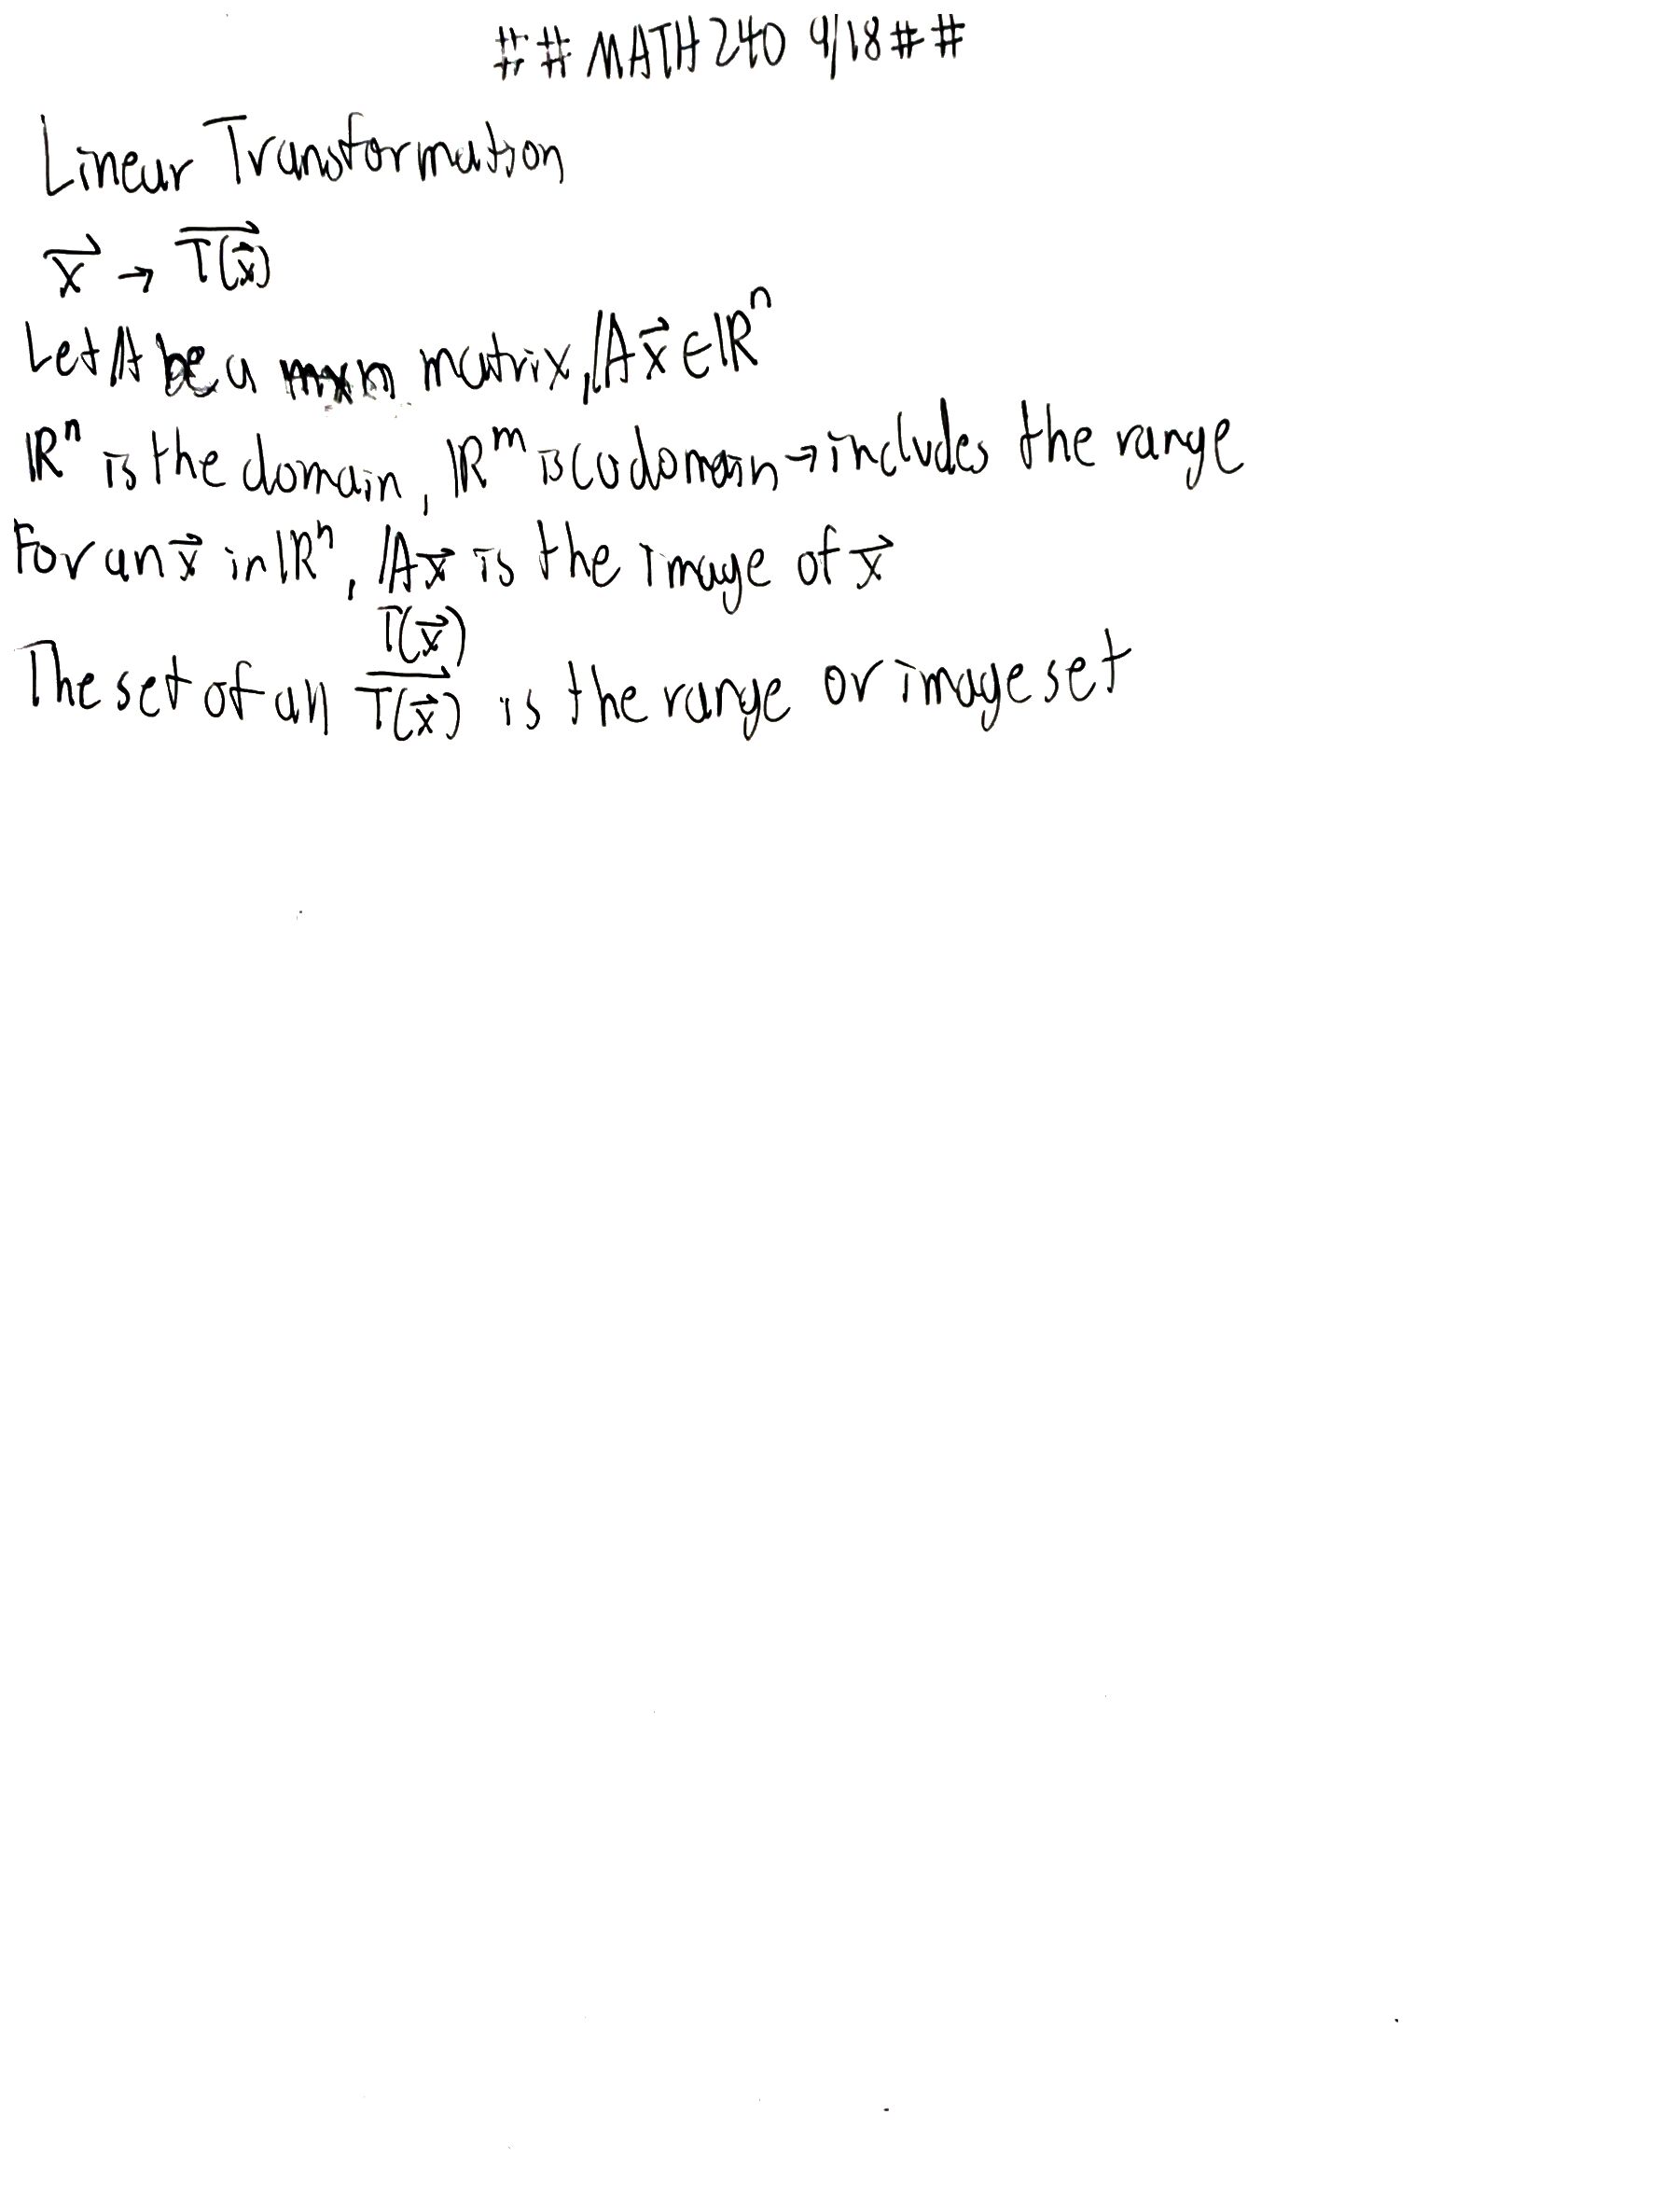 ## MATH 240 9/18 ##
Linear Transformation
x⃗ → T(x⃗)⃗
Let A be a mxn matrix, Ax⃗ ∈ ℝⁿ
ℝⁿ is the domain, ℝᵐ is codomain → includes the range
For an x⃗ in ℝⁿ, Ax⃗ is the image of x⃗
T(x⃗)
The set of all T(x⃗)⃗ is the range or image set